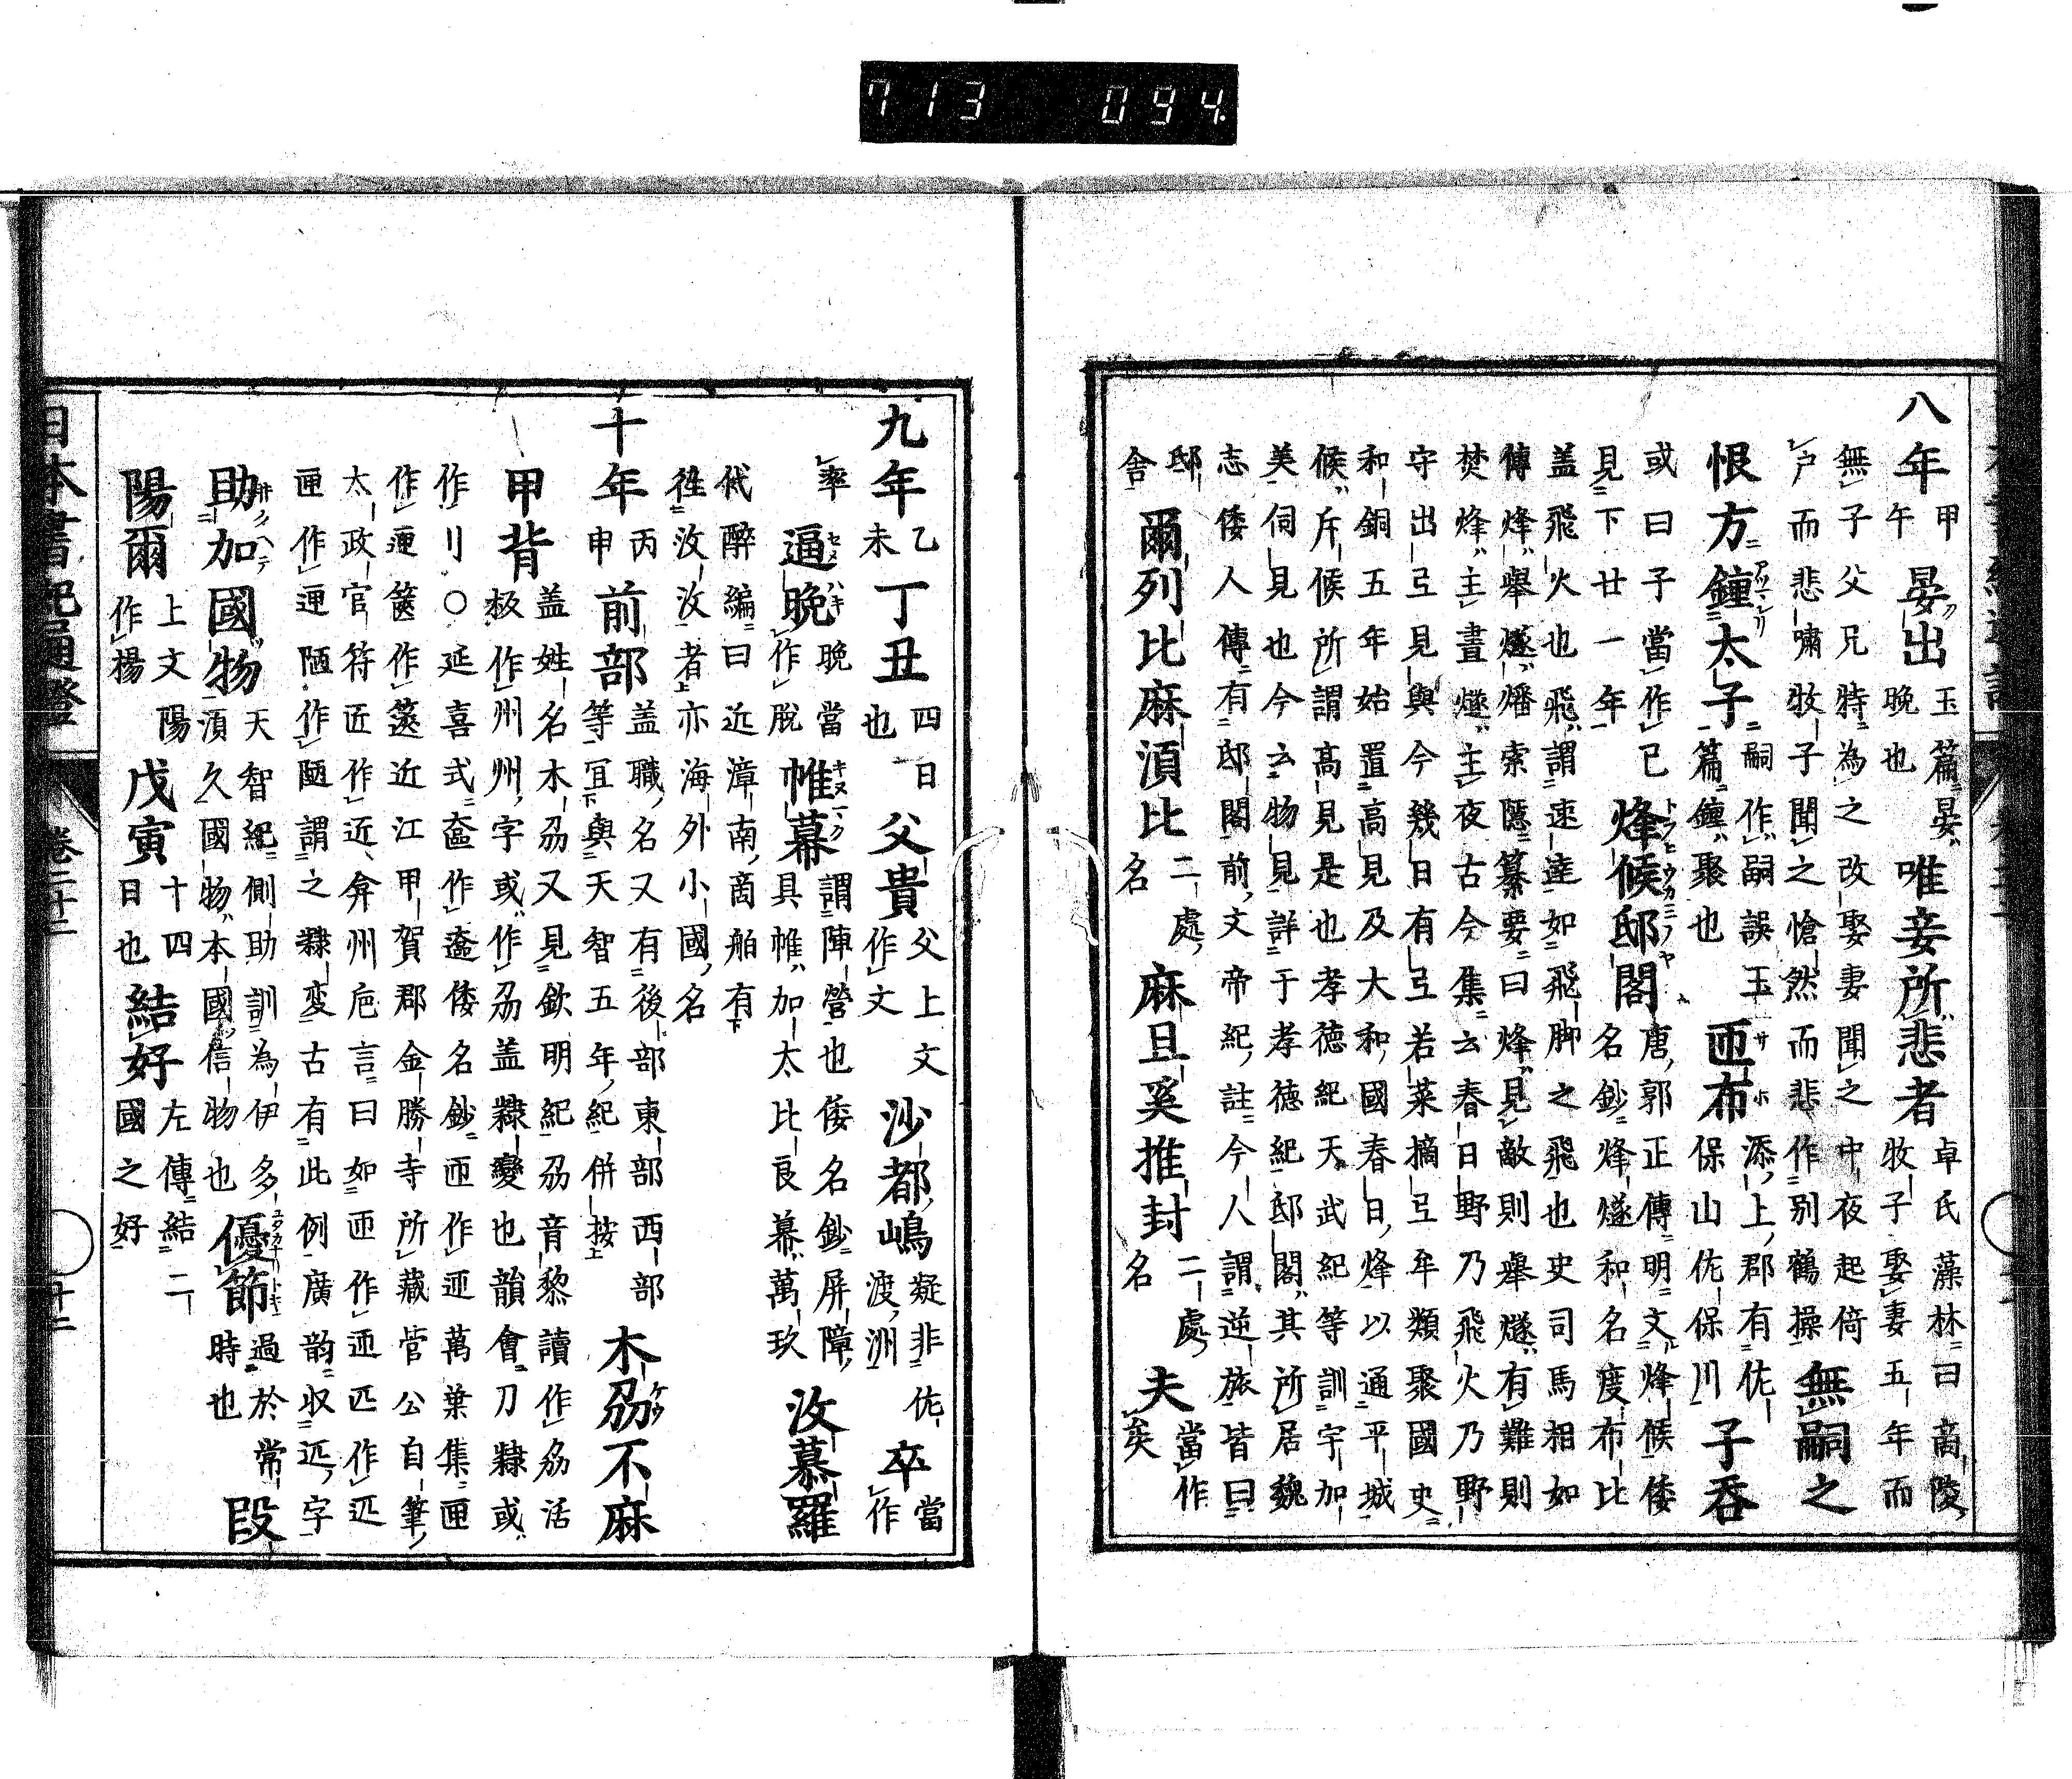 713 094.
八年 甲午 晏出 玉篇晏晚也 唯妾所悲者 卓氏藻林曰商陵牧子娶妻五年而
無子父兄特為之改娶妻聞之中夜起倚
戸而悲嘯牧子聞之愴然而悲作別鶴操 無嗣之
恨方鍾太子 嗣作嗣誤玉篇鍾聚也 匝布 添上郡有佐保山佐保川 子呑
或曰子當作己
見下廿一年 烽候邸閣 唐郭正傳明文烽候倭名鈔烽燧和名度布比
盖飛火也飛謂速達如飛脚之飛也史司馬相如
傳烽舉燧燔索隱纂要曰烽見敵則舉燧有難則
焚烽主晝燧主夜古今集云春日野乃飛火乃野
守出弖見與今幾日有弖若菜摘弖牟類聚國史
和銅五年始置高見及大和國春日烽以通平城
候斥候所謂高見是也孝徳紀天武紀等訓宇加
美伺見也今云物見詳于孝徳紀邸閣其所居魏
志倭人傳有邸閣前文帝紀註今人謂逆旅皆曰
邸舎 爾列比麻須比 二處名 麻且奚推封 二處名 夫 當作矣
九年 乙未 丁丑 四日也 父貴 父上文作文 沙都嶋 疑非佐渡洲 卒 當作
率 逼晩 晩當作脱 帷幕 謂陣營也倭名鈔屏障具帷加太比良幕萬玖 汝慕羅
代醉編曰近漳南商舶有
往汝汝者亦海外小國名
十年 丙申 前部 盖職名又有後部東部西部等冝與天智五年紀併按 木刕不麻
甲背 盖姓名木刕又見欽明紀刕音黎讀作刕活板作州州字或作刕盖隸變也韻會刀隸或
作刂○延喜式奩作匳倭名鈔匝作迊萬葉集匣
作匣篋作篋近江甲賀郡金勝寺所藏菅公自筆
太政官符匠作近弁州巵言曰如匝作迊匹作疋
匣作匣陋作陋謂之隸変古有此例廣韵収迊字
助加國物 天智紀側助訓為伊多須久國物本國信物也 優節 過於常時也 段
陽爾 上文陽作楊 戊寅 十四日也 結好 左傳結二國之好
日本書紀通證 卷二十二